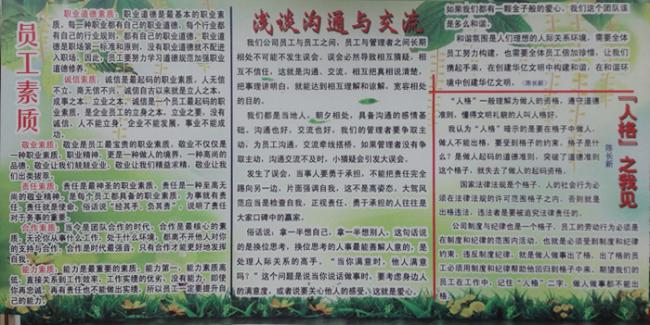 员工素质
职业道德素质：职业道德是最基本的职业素
质，每一种职业都有自己的职业道德，每个行业都
有自己的行业规则，都有自己的职业道德，职业道
德是职场第一标准和原则，没有职业道德就不配进
入职场。因此，员工要努力学习道德规范加强职业
道德修养。
诚信素质：诚信是最起码的职业素质，人无信
不立，商无信不兴，诚信自古以来就是立人之本，
成事之本，立业之本。诚信是一个员工最起码的职
业素质，是企业员工的立身之本，立业之要，没有
诚信，人不能立身，企业不能发展，事业不能成
功。
敬业素质：敬业是员工最宝贵的职业素质，敬业不仅仅是
一种职业素质，职业精神，更是一种做人的境界，一种高尚的
品德，敬业让我们兢兢业业，敬业让我们精益求精，敬业让我
们出类拔萃。
责任素质：责任是最神圣的职业素质，责任是一种至高无
尚的敬业精神，是每个员工都具备的职业素质，为事就有责
任，责任就是使命，俗话说“经其手，负其责”，说明了责任
对于务事的重要。
合作素质：当今是团队合作的时代，合作是最核心的素
质，无论你从事什么工作，处于什么环境，都离不开他人对你
的支持与合作，合作是时代最强音，只有合作才能更好地发挥
自我。
能力素质：能力是最重要的素质，能力第一，能力素质高
低，直接关系到工作效率，工作实绩的优劣，没有能力，即使
你再忠诚，再有责任也不能做出实绩，所以员工一定要提升自
己的能力。
浅谈沟通与交流
我们公司员工与员工之间，员工与管理者之间长期
相处不可能不发生误会，误会必然导致相互猜疑，相
互不信任，这就是沟通、交流，相互把真相说清楚，
把事理讲明白，就能达到相互理解和谅解，宽容相处
的目的。
我们都是当地人，朝夕相处，具备沟通的感情基
础，沟通也好，交流也好，我们的管理者要争取主
动，为员工沟通、交流牵线搭桥，如果管理者没有争
取主动，沟通交流不及时，小猜疑会引发大误会。
发生了误会，当事人要勇于承担，不能把责任完全
踢向另一边，片面强调自我，这不是高姿态。大驾风
范应当是检查自我，正视责任，勇于承担的人往往是
大家口碑中的赢家。
俗话说，拿一半想自己，拿一半想别人，这句话说
的是换位思考，换位思考的人事最能善解人意的，是
处理人际关系的高手。“当你满意时，他人满意
吗？”这个问题是说当你说话做事时，要考虑身边人
的满意度，或者说要关心他人的感受，这就是爱心，
如果我们都有一颗金子般的爱心，我们这个团队该
是多么和谐。
和谐氛围是人们理想的人际关系环境，需要全体
员工努力构建，也需要全体员工倍加珍惜，让我们
携起手来，在创建华亿文明中构建和谐，在和谐环
境中创建华亿文明。（陈长新）
『人格』之我见
陈长新
“人格”一般理解为做人的资格，遵守道德
准则，懂得文明礼貌的人叫人格好。
我认为“人格”暗示的是要在格子中做人，
做人不能出格，要受到格子的约束，格子是什
么？是做人起码的道德准则，突破了道德准则
这个格子，就失去了做人的起码资格。
国家法律法规是个格子，人的社会行为必
须在法律法规的许可范围格子之内，否则就是
出格违法，违法者是要被追究法律责任的。
公司制度与纪律也是一个格子，员工的劳动行为必须是
在制度和纪律的范围内活动，也就是必须受到制度和纪律
约束，违反制度纪律，就是做人做事出了格，出了格的员
工必须用制度和纪律帮助他回归到格子中来，期望我们的
员工在工作中，记住“人格”二字，做人做事都不能出
格。